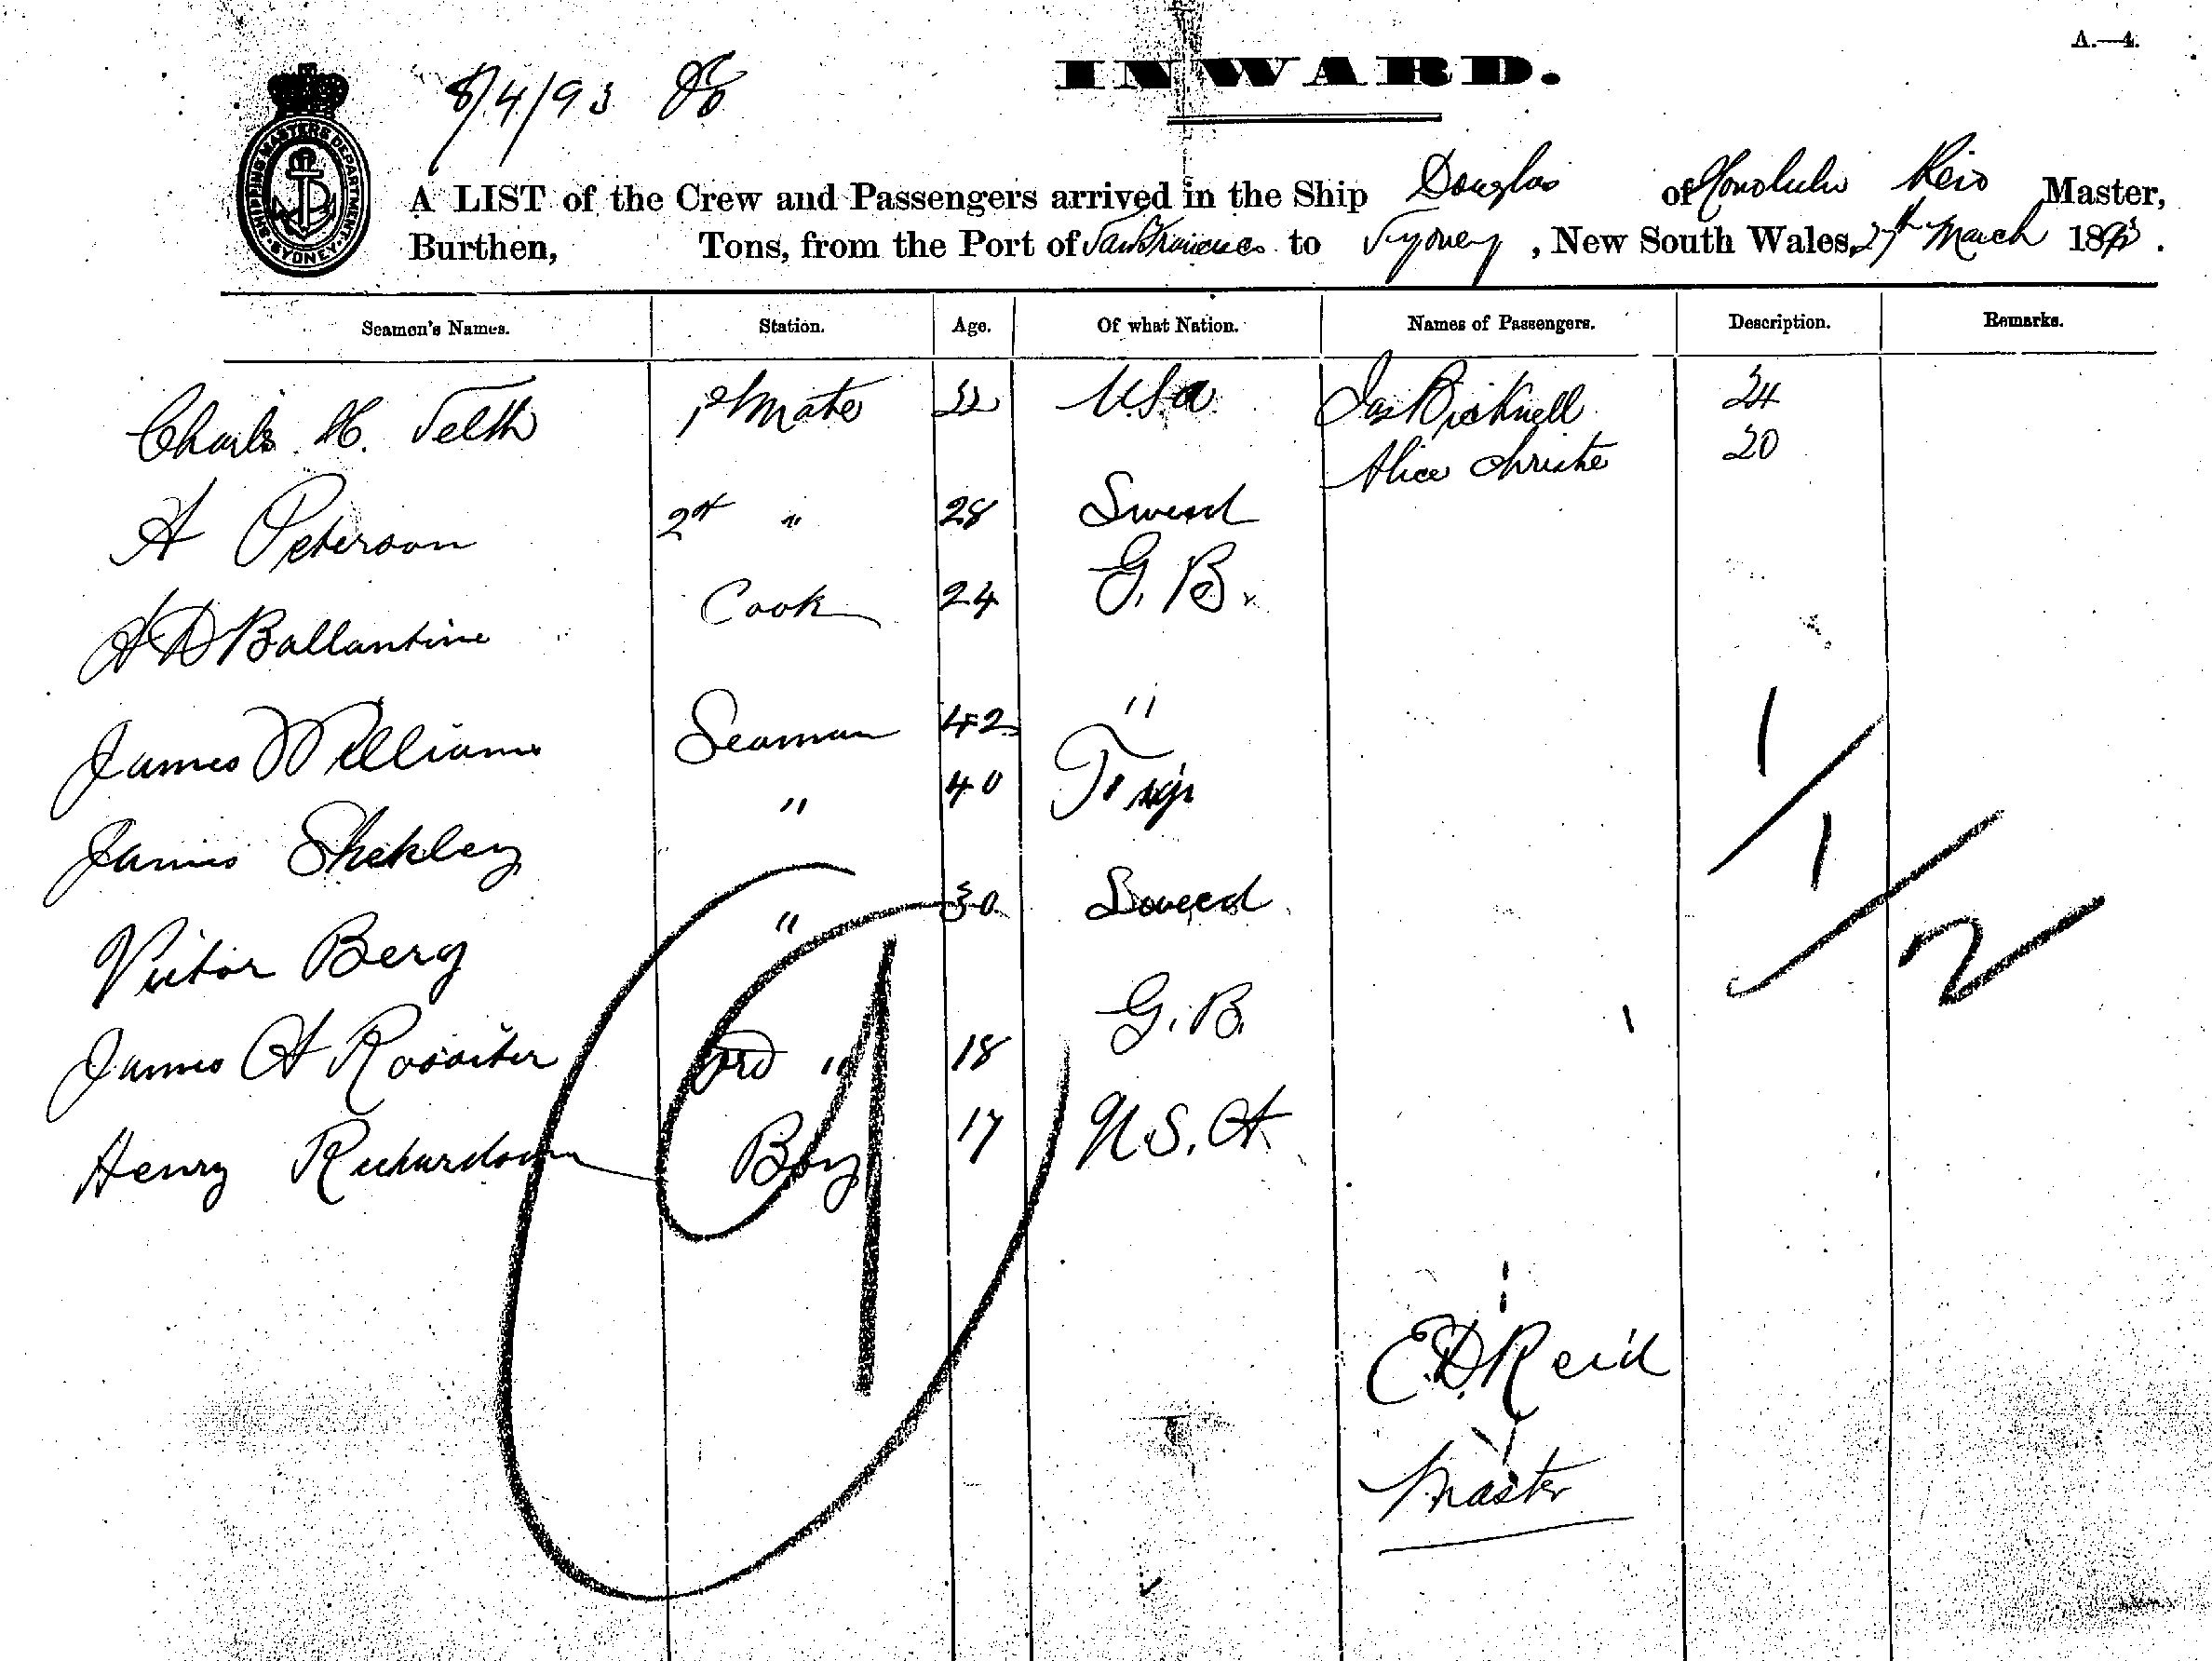 A.—4.
8/4/93
INWARD.
SHIPPING MASTERS DEPARTMENT SYDNEY
A LIST of the Crew and Passengers arrived in the Ship Douglas of Honolulu Reid Master,
Burthen, Tons, from the Port of San Francisco to Sydney, New South Wales, 27th March 1893.
Seamen's Names. Station. Age. Of what Nation. Names of Passengers. Description. Remarks.
Charles H. 1st Mate 32 USA Jas Bicknell 24
Alice Christie 20
A Peterson 2d " 28 Sweed
A D Ballantine Cook 24 G. B.
James Williams Seaman 42 "
James Shekley " 40
Victor Berg " 30 Sweed
James A Rossiter Ord " 18 G. B.
Henry Richardson Boy 17 U.S.A
1
1
2
9
E.D. Reid
Master